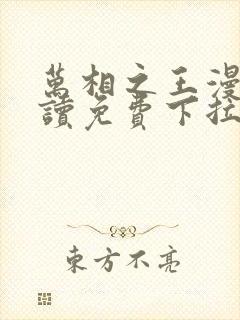 萬相之王漫
讀免費下拉
東方不亮